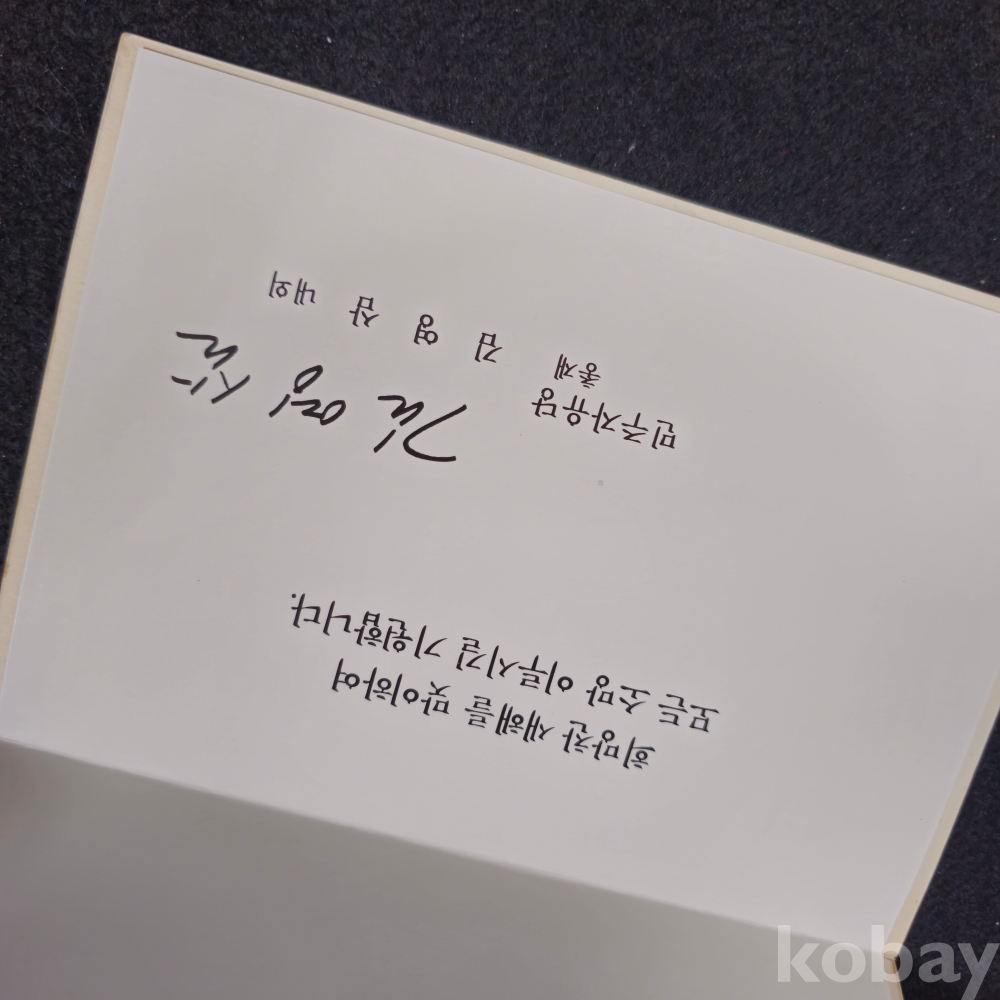 희망찬 새해를 맞이하여
모든 소망 이루시길 기원합니다.
민주자유당
총재 김영삼 내외
김영삼
kobay